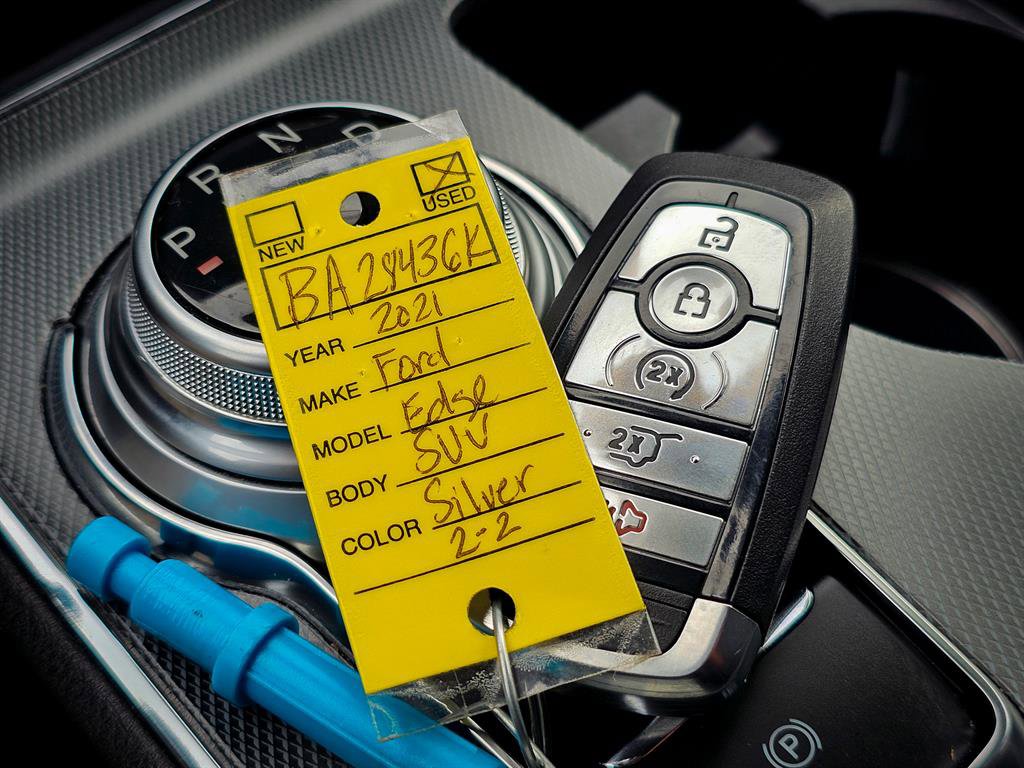 P R N D
NEW USED
BA28436K
2021
YEAR Ford
MAKE Edge
MODEL SUV
BODY Silver
COLOR 2-2
2x
2x
P